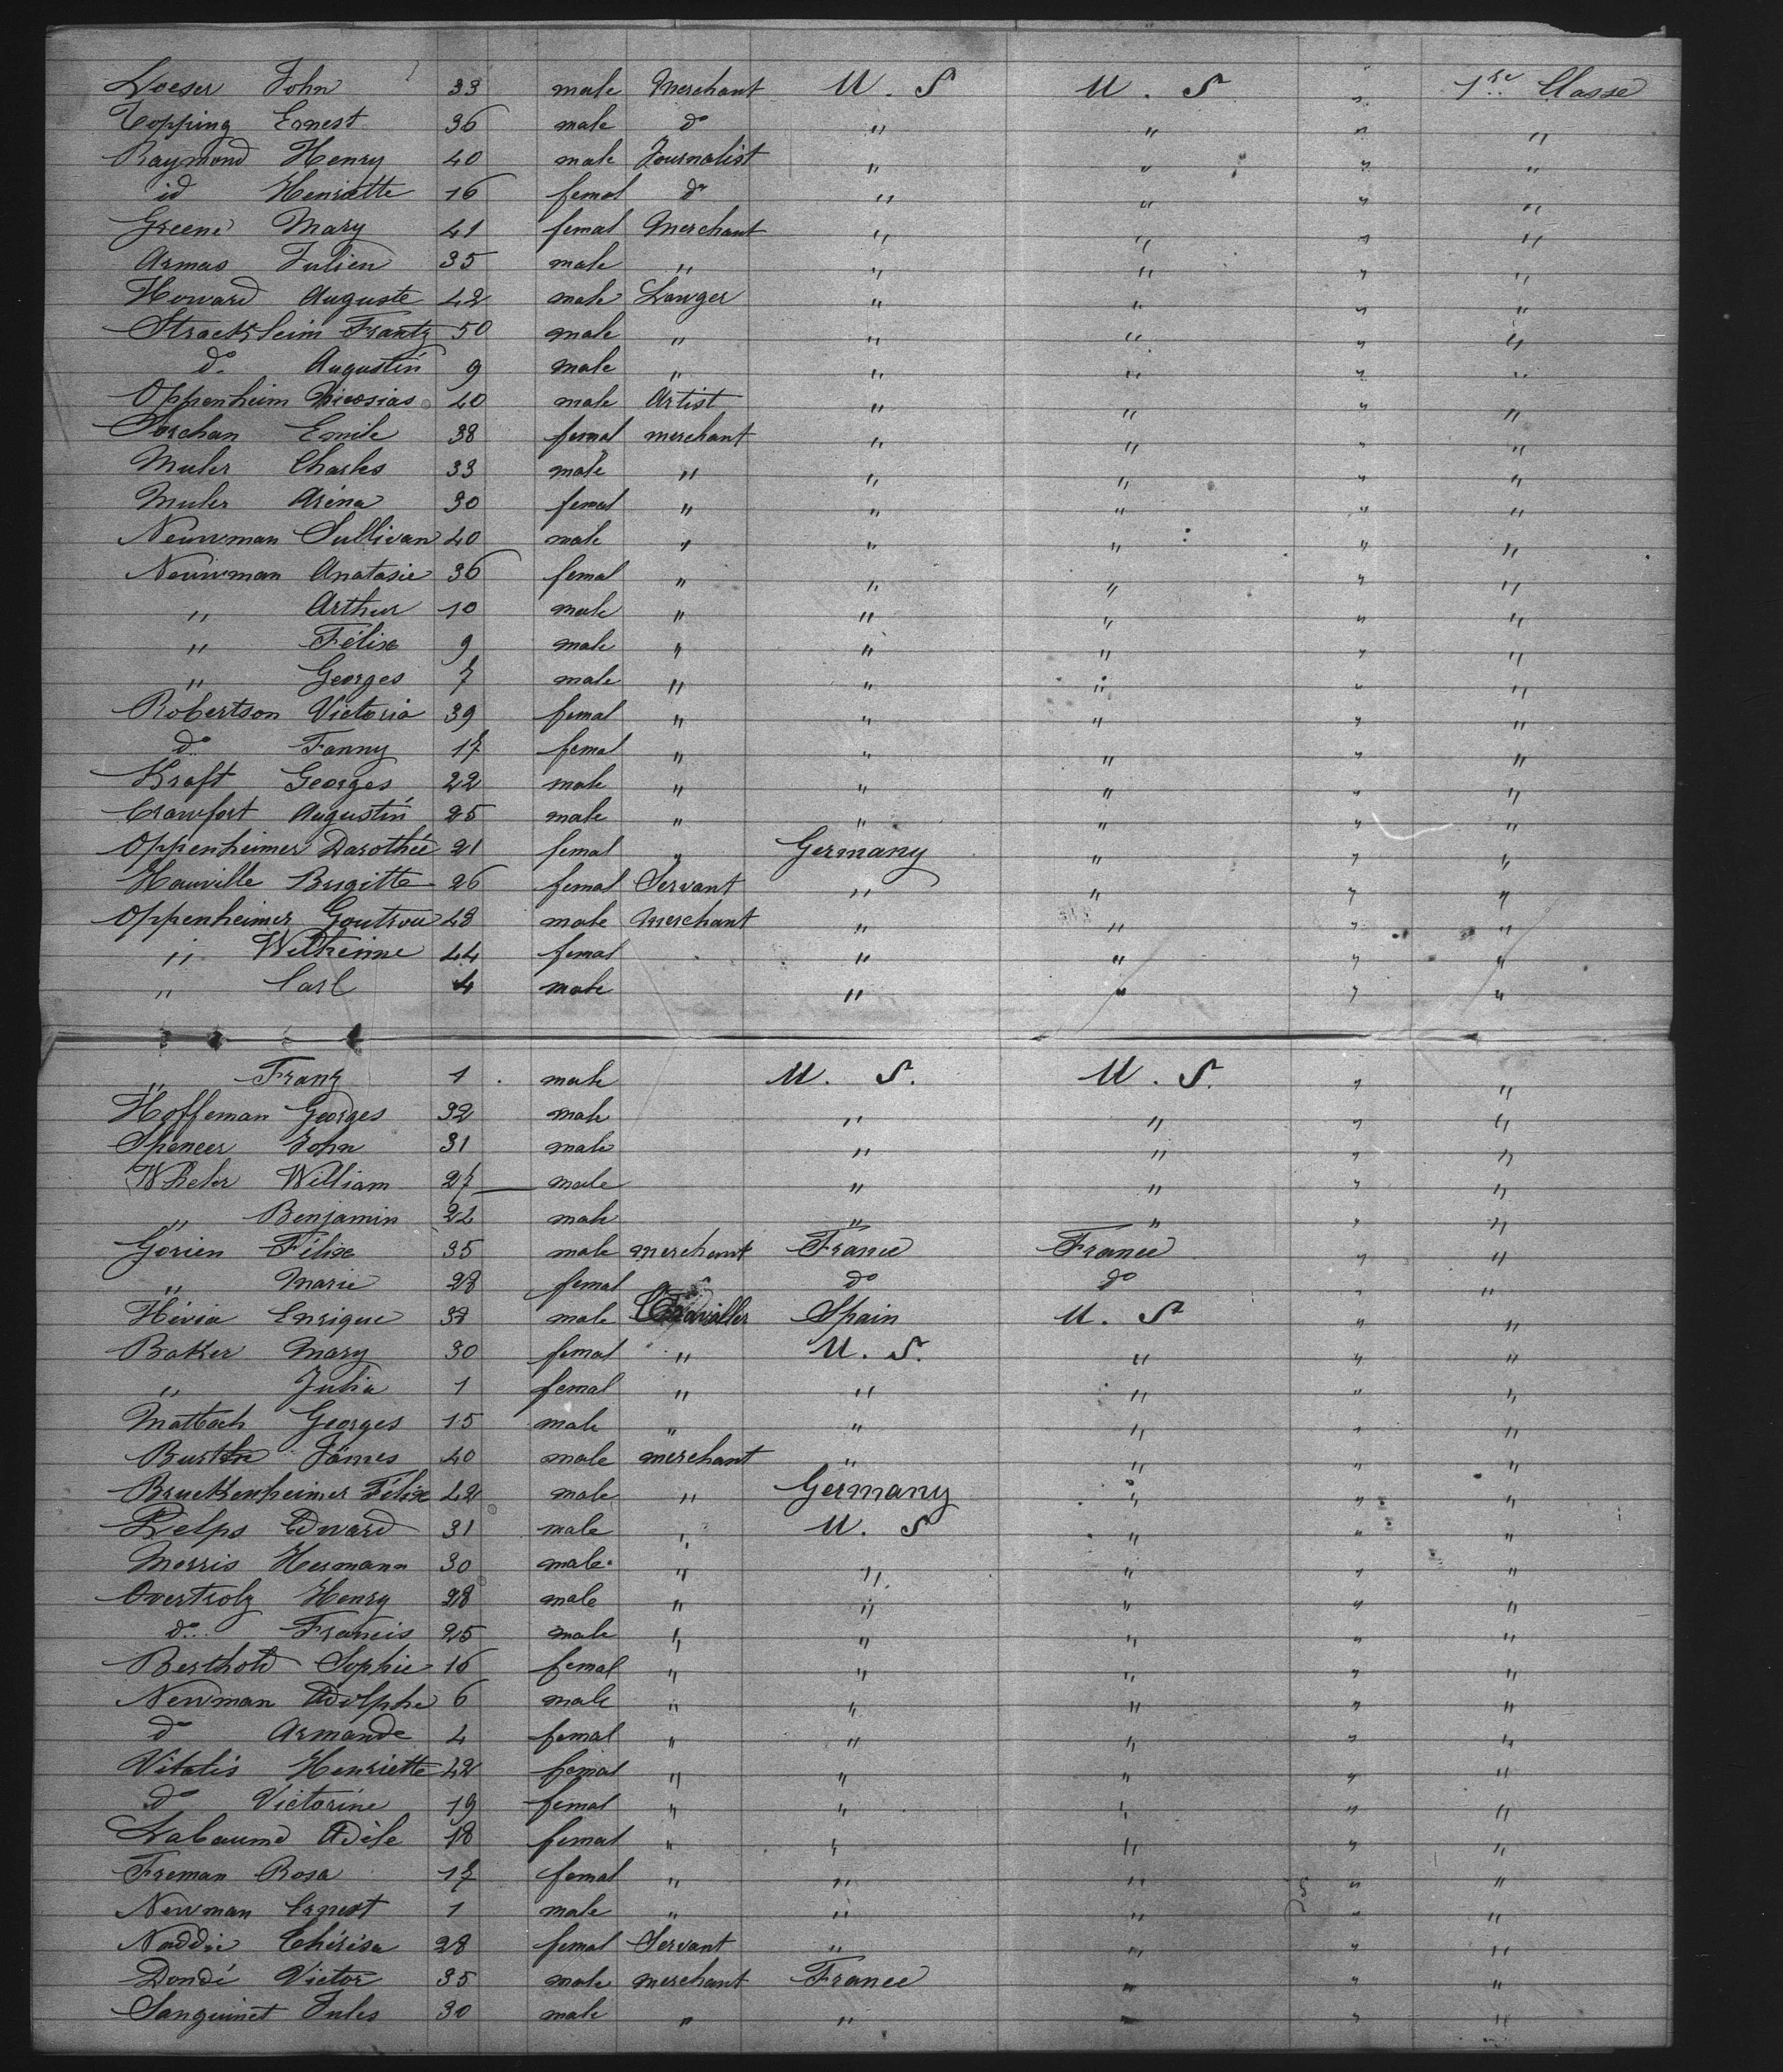 Loeser John 33 male Merchant U. S U. S " 1re Classe
Topping Ernest 36 male do " " " "
Raymond Henry 40 male Journalist " " " "
id Henriette 16 femal do " " " "
Greene Mary 41 femal Merchant " " " "
Armas Julien 35 male " " " " "
Howard Auguste 42 male Lawyer " " " "
Strackheim Frantz 50 male " " " " "
do Augustin 9 male " " " " "
Oppenheim 40 male Artist " " " "
Emile 38 femal merchant " " " "
Muler Charles 33 male " " " " "
Muler Aréna 30 femal " " " " "
Neuwman Sullivan 40 male " " " " "
Neuwman Anatasie 36 femal " " " " "
" Arthur 10 male " " " " "
" Félix 9 male " " " " "
" Georges 7 male " " " " "
Robertson Victoria 39 femal " " " " "
do Fanny 17 femal " " " " "
Kraft Georges 22 male " " " " "
Crawfort Augustin 25 male " " " " "
Oppenheimer Darothée 21 femal " Germany " " "
Hauville Brigitte 26 femal Servant " " " "
Oppenheimer Goutrou 48 male Merchant " " " "
" Wilheime 44 femal " " " "
" Carl 4 male " " " "
" Franz 1 male U. S. U. S. " "
Hoffeman Georges 32 male " " " "
Spencer John 31 male " " " "
Wheler William 27 male " " " "
" Benjamin 22 male " " " "
Gorien Félix 35 male merchant France France " "
" Marie 28 femal do do " "
Hévia Enrique 38 male Traveller Spain U. S " "
Baker Mary 30 femal " U. S. " " "
" Julia 1 femal " " " " "
Matbach Georges 15 male " " " " "
James 40 male merchant " " " "
Bruckenheimer Félix 42 male " Germany " " "
Phelps Edward 31 male " U. S " " "
Morris Hermann 30 male " " " " "
Overtsolz Henry 28 male " " " " "
do Francis 25 male " " " " "
Berthold Sophie 16 femal " " " " "
Newman Adolphe 6 male " " " " "
do Armande 4 femal " " " " "
Vitalis Henriette 42 femal " " " " "
do Victorine 19 femal " " " " "
Labaume Adèle 18 femal " " " " "
Freman Rosa 17 femal " " " " "
Newman Ernest 1 male " " " " "
Naddie Thérésa 28 femal Servant " " " "
Dondé Victor 35 male merchant France " " "
Sanguinet Jules 30 male " " " " "